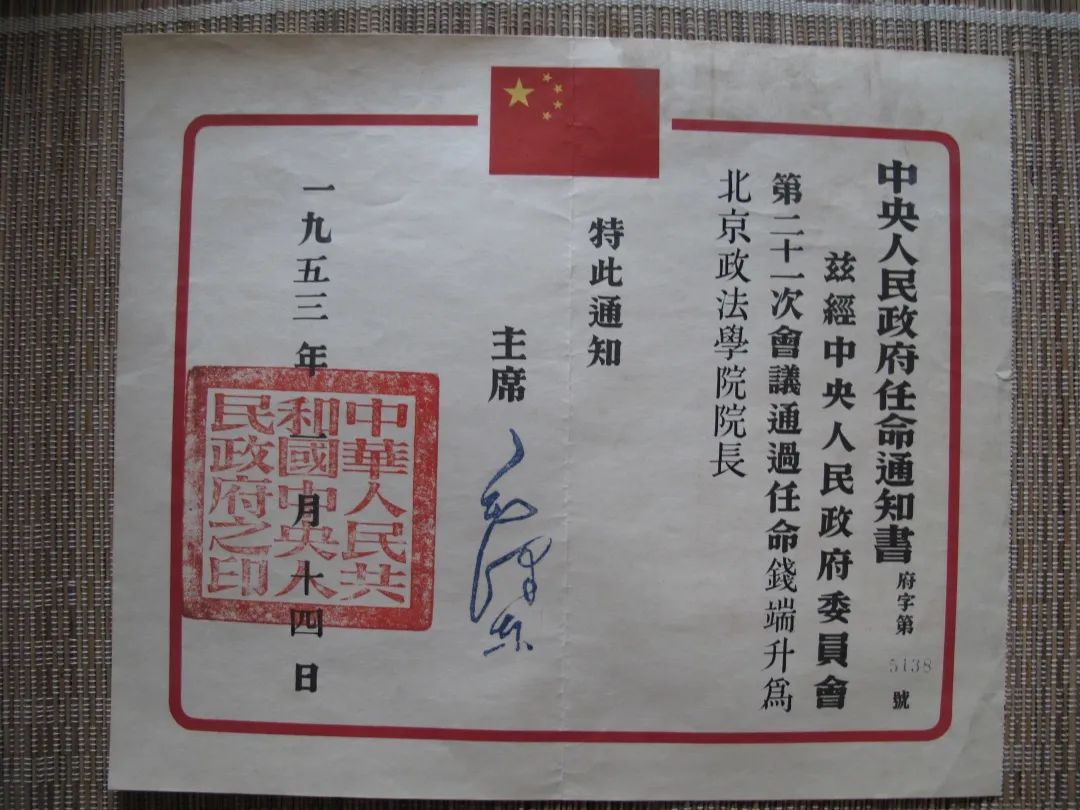 中央人民政府任命通知書
府字第5138號
茲經中央人民政府委員會
第二十一次會議通過任命錢端升爲
北京政法學院院長
特此通知
主席
毛澤東
一九五三年一月十四日
中華人民共
和國中央人
民政府之印